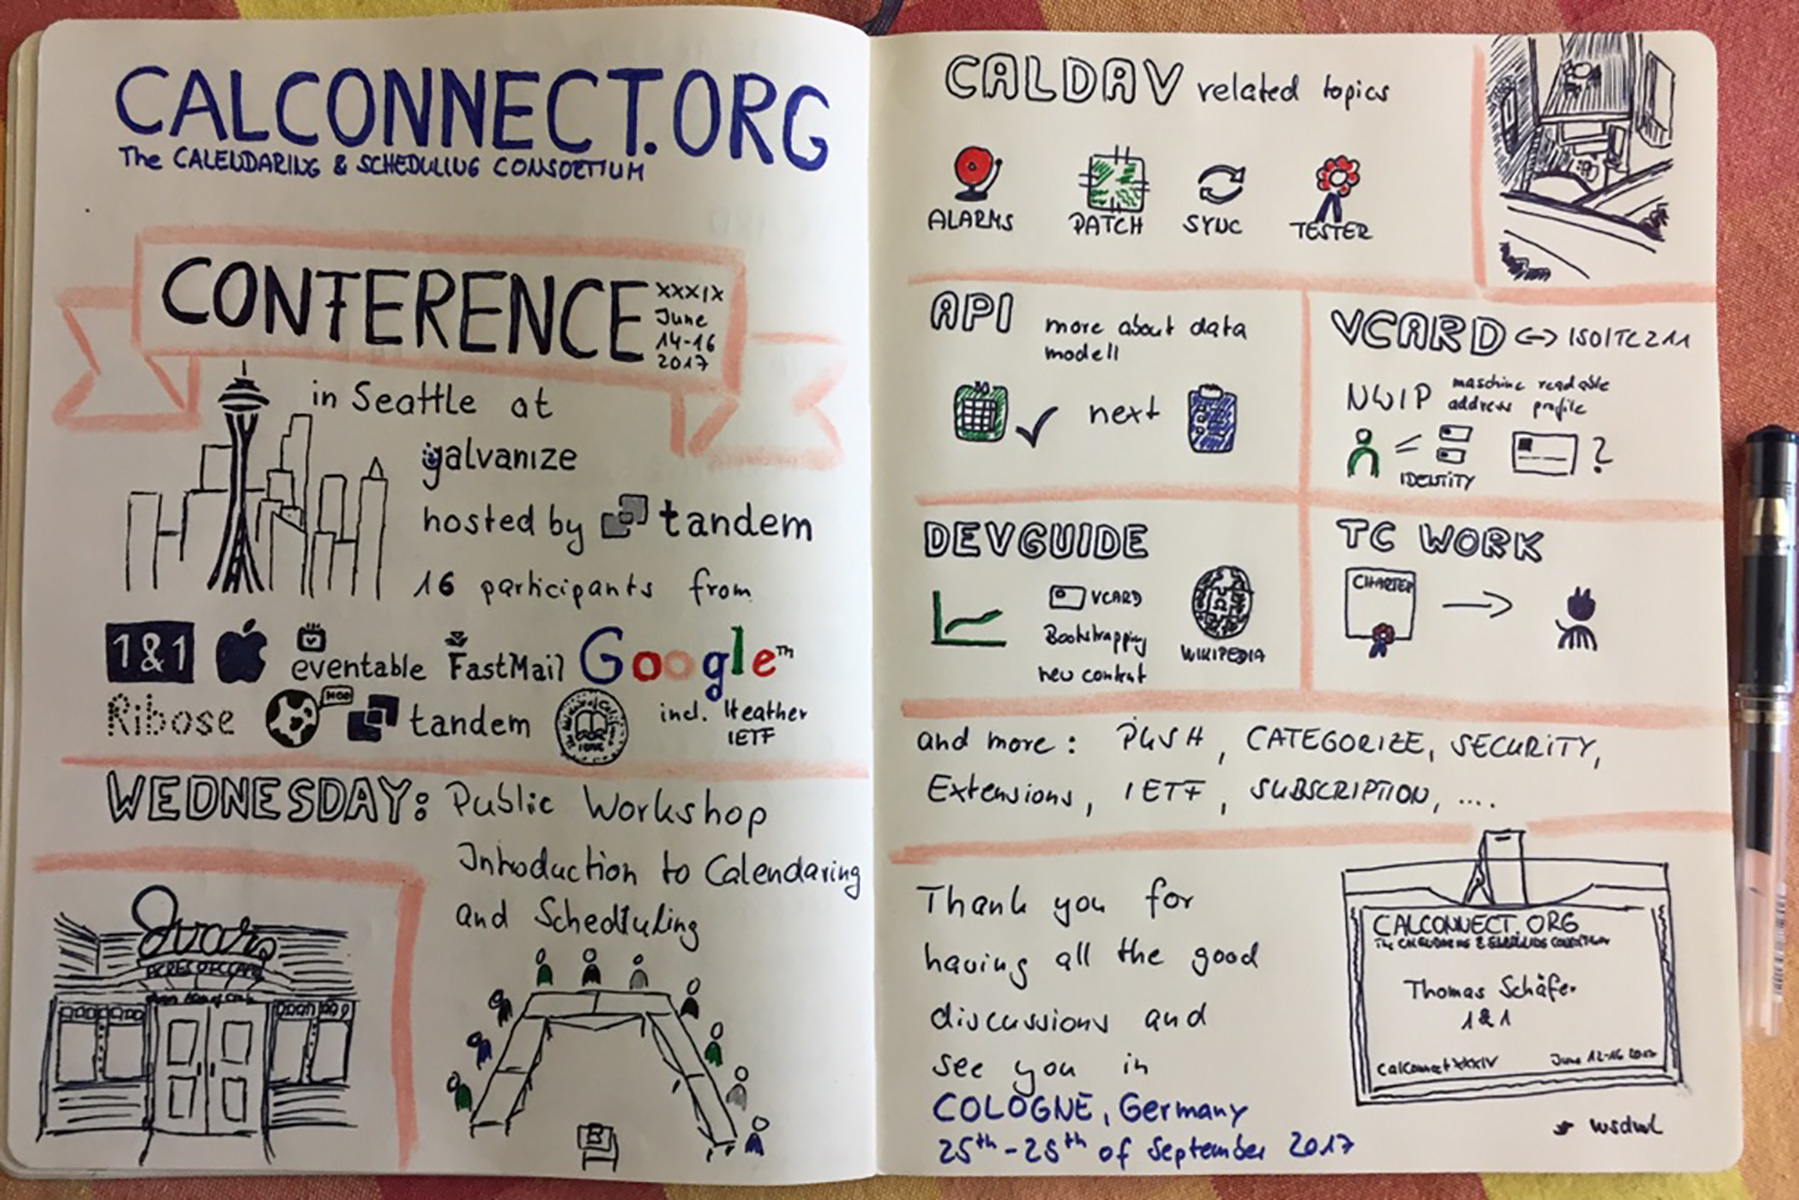 CALCONNECT.ORG
The CALENDARING & SCHEDULING CONSORTIUM
CONFERENCE
XXXIX
June
14-16
2017
in Seattle at
galvanize
hosted by tandem
16 participants from
1&1 eventable FastMail Google TM
Ribose tandem incl. Heather
IETF
WEDNESDAY: Public Workshop
Introduction to Calendaring
and Scheduling
Ivar's
ACRES OF CLAMS
CALDAV related topics
ALARMS PATCH SYNC TESTER
API more about data
modell
next
VCARD <-> ISO/TC211
NWIP maschine readable
address profile
IDENTITY ?
DEVGUIDE
VCARD
Bootstrapping
new content
WIKIPEDIA
TC WORK
CHARTER
and more: PUSH, CATEGORIZE, SECURITY,
Extensions, IETF, SUBSCRIPTION, ....
Thank you for
having all the good
discussions and
see you in
COLOGNE, Germany
25th-28th of September 2017
CALCONNECT.ORG
The CALENDARING & SCHEDULING CONSORTIUM
Thomas Schäfer
1&1
CalConnect XXXIV June 12-16 2017
wsdwl